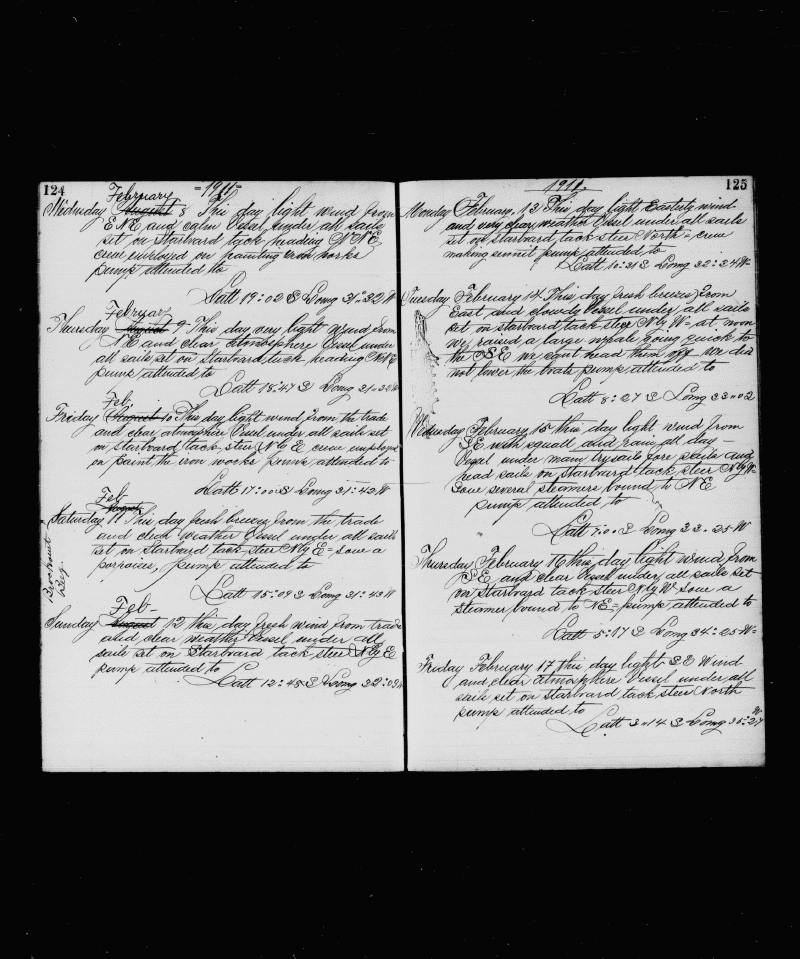 124
=1911=
February
Wednsday August 8 This day light wind from
E NE and calm Vessel under all sails
set on Starbord tack heading N NE
crew employed on painting iron works
pump attended to
Latt 19:02 S Long 31:32 W
February
Thursday August 9 This day very light wind from
NE and clear atmosphere Vessel under
all sails set on Starbord tack heading NNE
pump attended to
Latt 18:47 S Long 31:32 W
Feb.
Friday August 10 This day light wind from the trade
and clear atmosphere Vessel under all sails set
on Starbord tack steer N by E crew employed
on paint the iron works pump attended to
Latt 17:00 S Long 31:42 W
Feb
August
Saturday 11 This day fresh breeze from the trade
and clear weather Vessel under all sails
set on Starbord tack steer N by E = saw a
porpoises, pump attended to
Latt 15:09 S Long 31:43 W
Feb-
Sunday August 12 this day fresh wind from trade
and clear weather Vessel under all
sails set on Starbord tack steer N by E
pump attended to
Latt 12:45 S Long 32:09
125
1911.
Monday February, 13 This day light Easterly wind
and very clear weather Vessel under all sails
set on starbord tack steer North = crew
making sennit pump attended to
Latt 10:31 S Long 32:34 W=
Tuesday February 14 This day fresh breeze from
East and cloudy Vessel under all sails
set on starbord tack steer N by W= at noon
we raised a large whale going quick to
the SE we cant head them off we did
not lower the boats pump attended to
Latt 8:27 S Long 33:02
Wednsday February 15 this day light wind from
SE with squall and rain all day —
Vessel under main try sails fore sails and
head sails on starbord tack steer N by W=
Saw several steamers bound to NE
pump attended to
Latt 7:0 S Long 33:25 W
Thursday February 16 this day light wind from
SE and clear Vessel under all sails set
on Starbord tack steer N by W Saw a
steamer bound to NE= pump attended to
Latt 5:17 S Long 34:25 W=
Friday February 17 this day light SE Wind
and clear atmosphere Vessel under all
sails set on starbord tack steer North
pump attended to
Latt 3:14 S Long 35:27 W